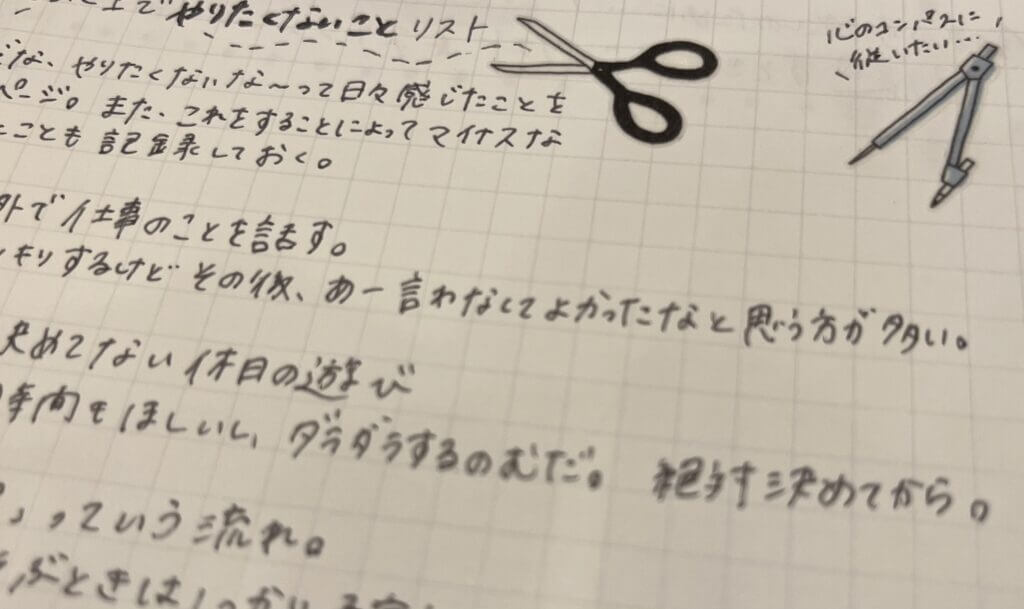 上でやりたくないことリスト
心のコンパスに
従いたい…
な、やりたくないな〜って日々感じたことを
ページ。また、これをすることによってマイナスな
ことも記録しておく。
外で仕事のことを話す。
きりするけどその後、あー言わなくてよかったなと思う方が多い。
決めてない休日の遊び
時間もほしいし、ダラダラするのむだ。絶対決めてから。
っていう流れ。
ぶときは